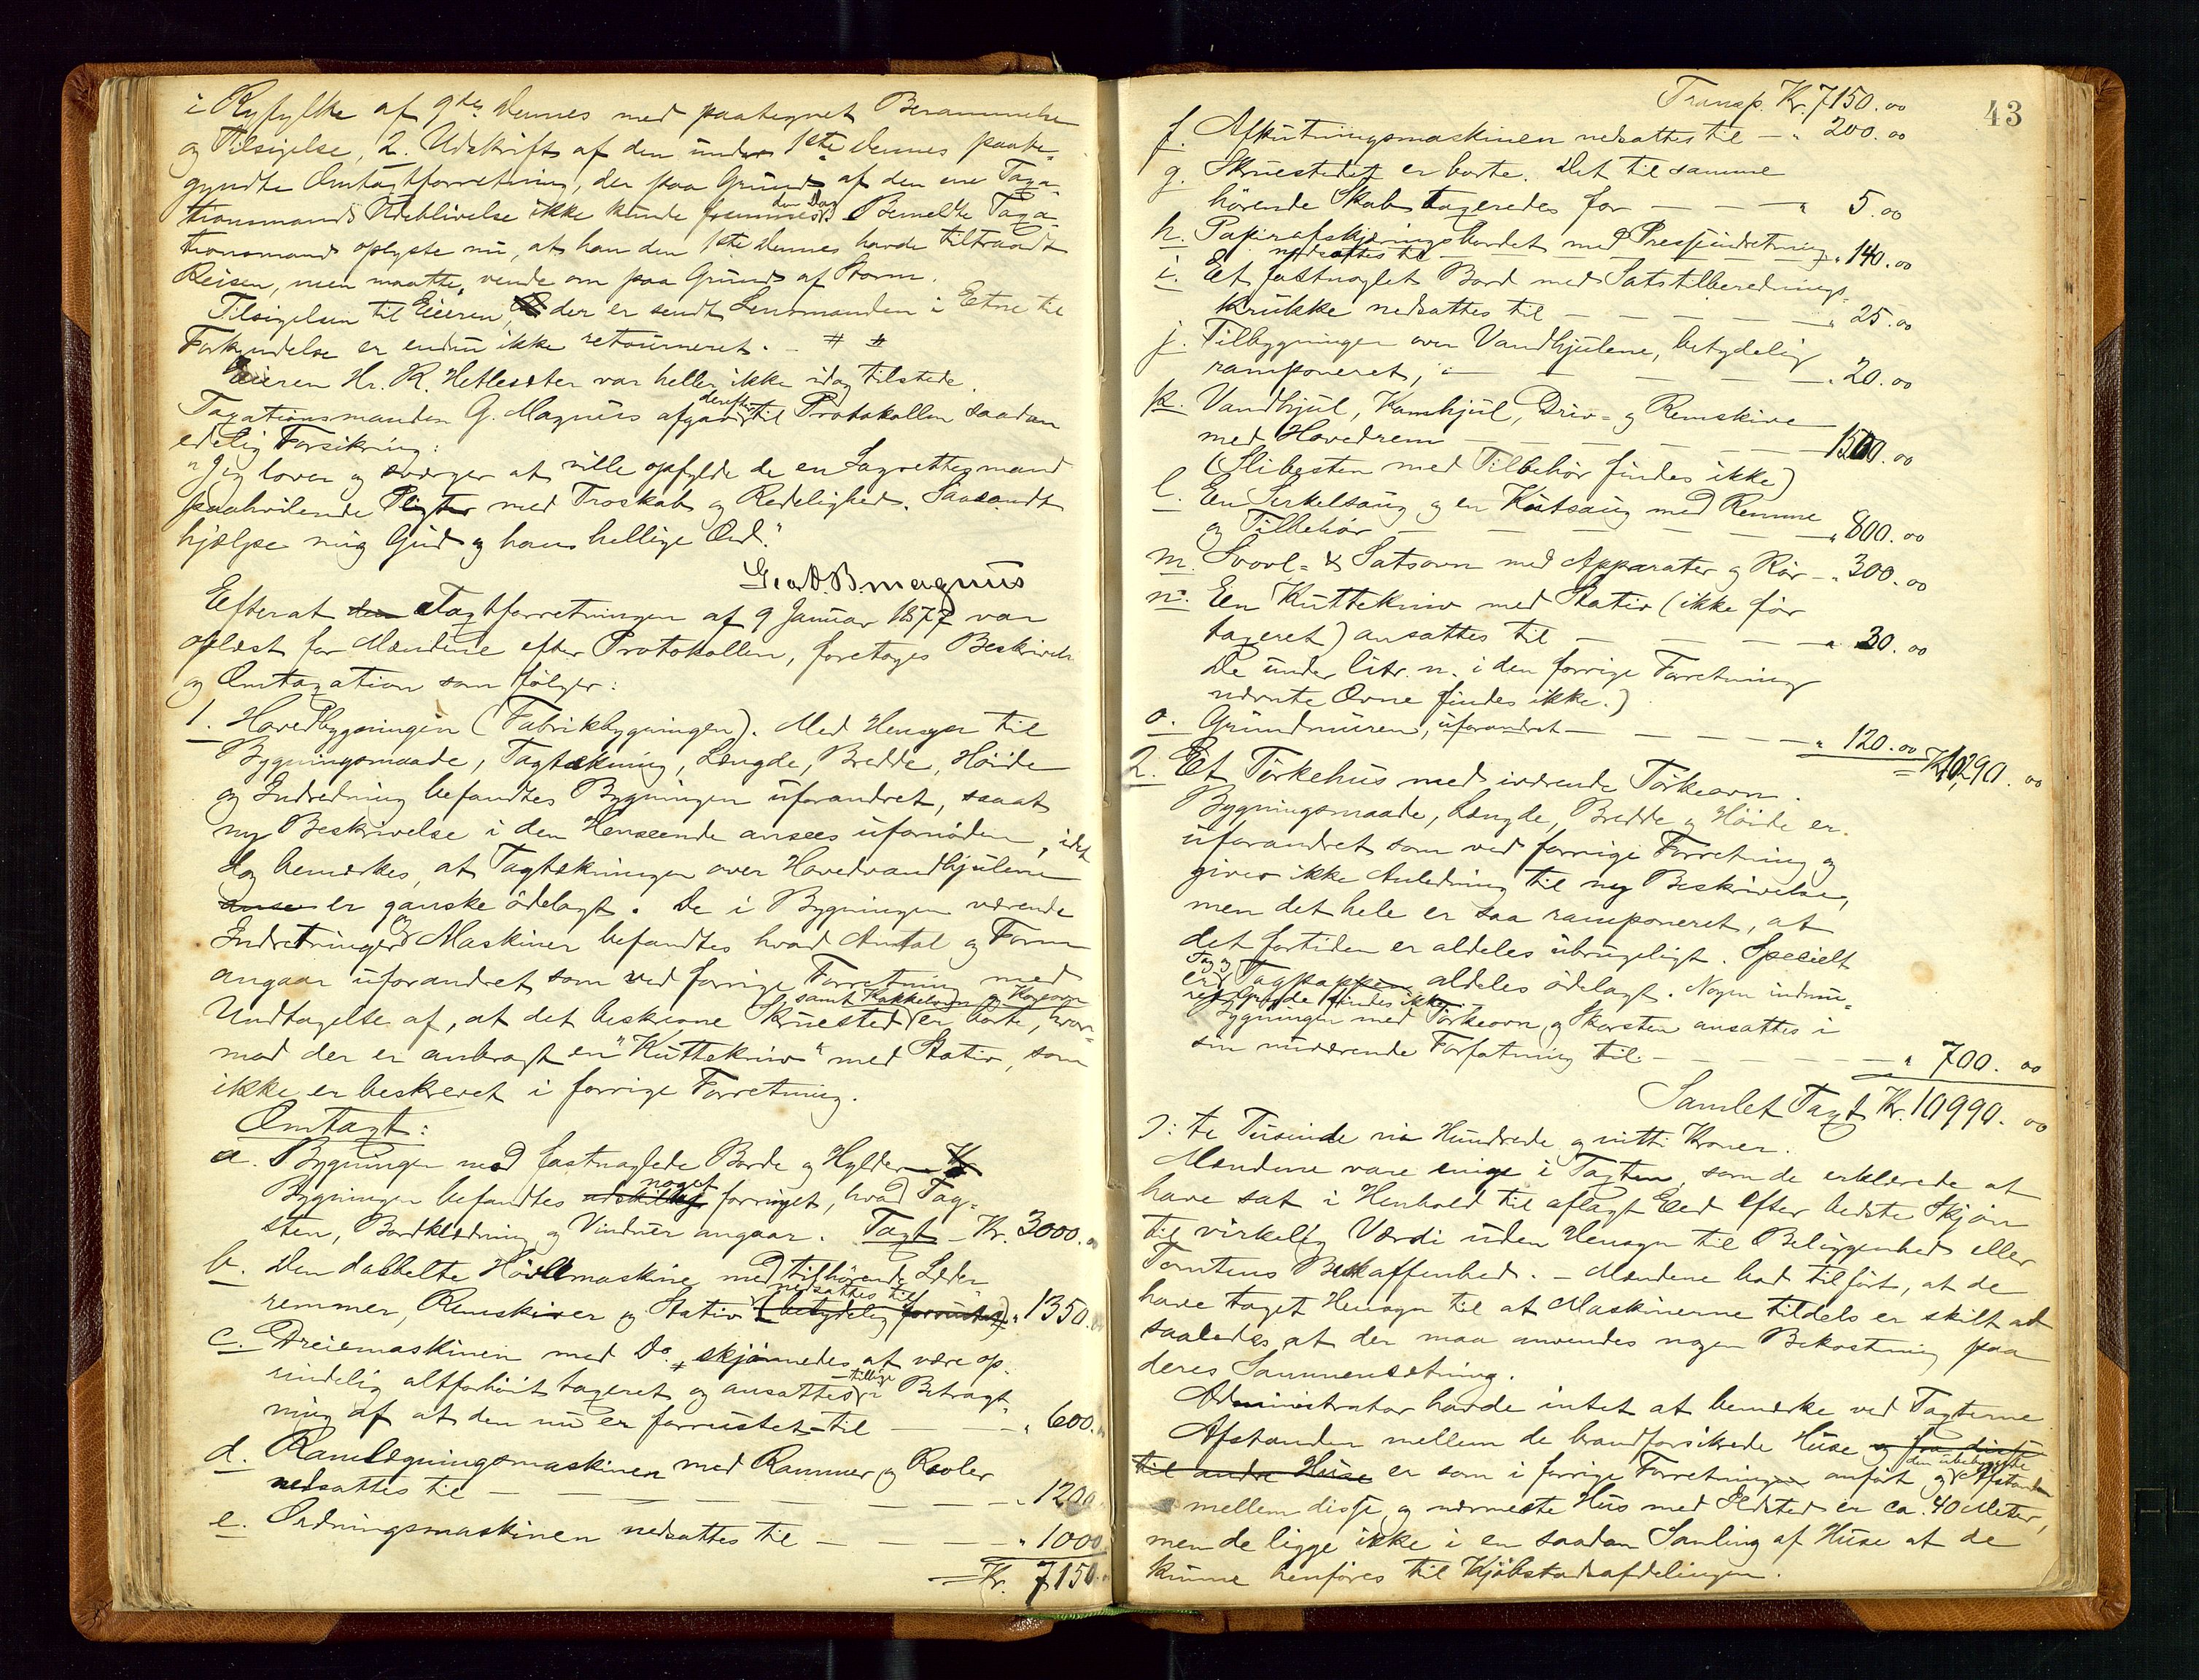 i Ryfylke af 9de dennes med paategnet Berammelse
og Tilsigelse, 2. Udskrift af den under 1ste dennes paabe-
gyndte Omtaxtforretning, der paa Grund af den ene Taxa-
tionsmands Udeblivelse ikke kunde fremmes den Dag. Bemeldte Taxa-
tionsmand oplyste nu, at han den 1ste dennes havde tiltraadt
Reisen, men maatte vende om paa Grund af Storm.
Tilsigelsen til Eieren, der er sendt Lensmanden i Etne til
Forkyndelse er endnu ikke retourneret.
Eieren Hr. K. Hetlesæter var heller ikke idag tilstede.
Taxationsmanden G. Magnus afgav derefter til Protokollen saadan
edelig Forsikring:
"Jeg lover og sværger at ville opfylde de en Lagrettesmand
paahvilende Pligter med Troskab og Redelighed. Saasandt
hjælpe mig Gud og hans hellige Ord."
B. magnus
Efterat den Taxtforretningen af 9 Januar 1877 var
oplæst for Mændene efter Protokollen, foretoges Beskrivelse
og Omtaxation som følger:
1. Hovedbygningen (Fabrikbygningen). Med Hensyn til
Bygningsmaade, Tagtækning, Længde, Bredde, Høide
og Indredning befandtes Bygningen uforandret, saaat
ny Beskrivelse i den Henseende ansees ufornøden, idet
dog bemærkes, at Tagtækningen over Hovedvandhjulene
er ganske ødelagt. De i Bygningen værende
Indretninger og Maskiner befandtes hvad Antal og Form
angaar uforandret som ved forrige Forretning med
Undtagelse af, at det beskrevne Skruested samt Kakkelovn og Kogeovn er borte, hvor-
mod der er anbragt en "Kuttekniv" med Stativ, som
ikke er beskrevet i forrige Forretning.
Omtaxt:
a. Bygningen med fastnaglede Borde og Hylder
Bygningen befandtes noget forringet, hvad Tag-
sten, Bordklædning og Vinduer angaar. Taxt – Kr. 3000.
b. Den dobbelte Høvlemaskine med tilhørende Læder-
remmer, Remskiver og Stativ nedsattes til (betydelig forrustet) " 1350.
c. Dreiemaskinen med Do. skjønnedes at være op-
rindelig altforhøit taxeret og ansattes tillige i Betragt-
ning af at den nu er forrustet til — — " 600.
d. Ramlægningsmaskinen med Rammer og Reoler
nedsattes til — — — — — " 1200.
e. Ordningsmaskinen nedsattes til — — — " 1000
Kr. 7150.
43
Transp. Kr. 7150.00
f. Afkutningsmaskinen nedsattes til — " 200.00
g. Skruestedet er borte. Det til samme
hørende Skab taxeredes for — — — " 5.00
h. Papirafskjæringsbordet med Presseindretning
nedsattes til " 140.00
i. Et fastnaglet Bord med Satstilberednings-
krukke nedsattes til — — — — " 25.00
j. Tilbygningen over Vandhjulene, betydelig
ramponeret, — — — — " 20.00
k. Vandhjul, Kamhjul, Driv- og Remskive
med Hovedrem — — — — 1500.00
(Slibesten med Tilbehør findes ikke)
l. En Serkelsaug og en Kutsaug med Remme
og Tilbehør — — — — " 800.00
m. Svovl- & Satsovn med Apparater og Rør — " 300.00
n. En Kuttekniv med Stativ (ikke før
taxeret) ansattes til — — — " 30.00
De under litr. n. i den forrige Forretning
nævnte Ovne findes ikke.)
o. Grundmuren, uforandret — — — — " 120.00
= Kr. 10,290.00
2. Et Tørkehus med iværende Tørkeovn.
Bygningsmaade, Længde, Bredde og Høide er
uforandret som ved forrige Forretning og
giver ikke Anledning til ny Beskrivelse,
men det hele er saa ramponeret, at
det fortiden er aldeles ubrugeligt. Specielt
er Tag og Tagpappen aldeles ødelagt. Nogen indmu-
ret Gryde findes ikke.
Bygningen med Tørkeovn og Skorsten ansattes i
sin nuværende Forfatning til — — — " 700.00
Samlet Taxt Kr. 10990.00
ɔ: ti Tusinde ni Hundrede og nitti Kroner.
Mændene vare enige i Taxten, som de erklærede at
have sat i Henhold til aflagt Eed efter bedste Skjøn
til virkelig Værdi uden Hensyn til Beliggenhed eller
Tomtens Beskaffenhed. – Mændene bad tilført, at de
have taget Hensyn til at Maskinerne tildels er skilt ad
saaledes at der maa anvendes nogen Bekostning paa
deres Sammensætning.
Administrator havde intet at bemærke ved Taxterne
Afstanden mellem de brandforsikrede Huse og fra disse
til andre Huse er som i forrige Forretningen anført og den ubebyggede Afstand
mellem disse og nærmeste Hus med Ildsted er ca. 40 Meter,
men de ligge ikke i en saadan Samling af Huse at de
kunne henføres til Kjøbstadsafdelingen.